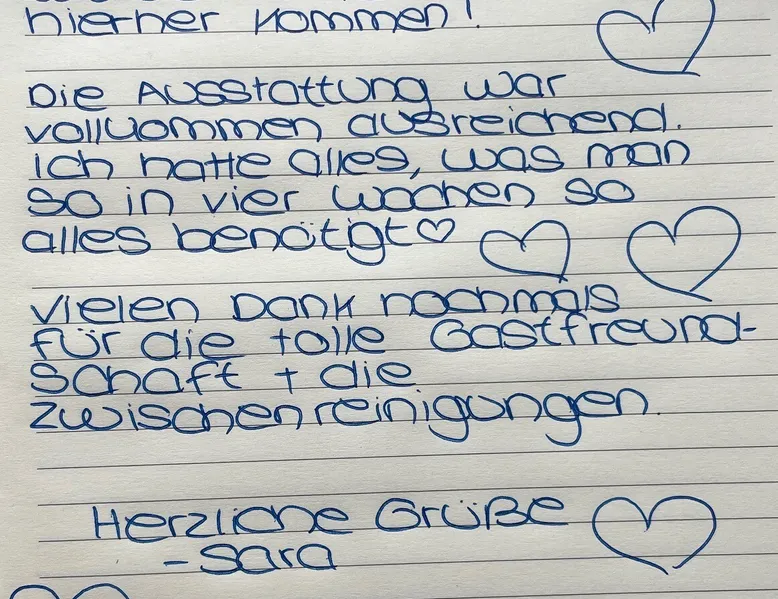 hierher kommen!
Die Ausstattung war
vollkommen ausreichend.
Ich hatte alles, was man
so in vier Wochen so
alles benötigt♡
Vielen Dank nochmals
für die tolle Gastfreund-
schaft + die
Zwischenreinigungen.
Herzliche Grüße
- Sara